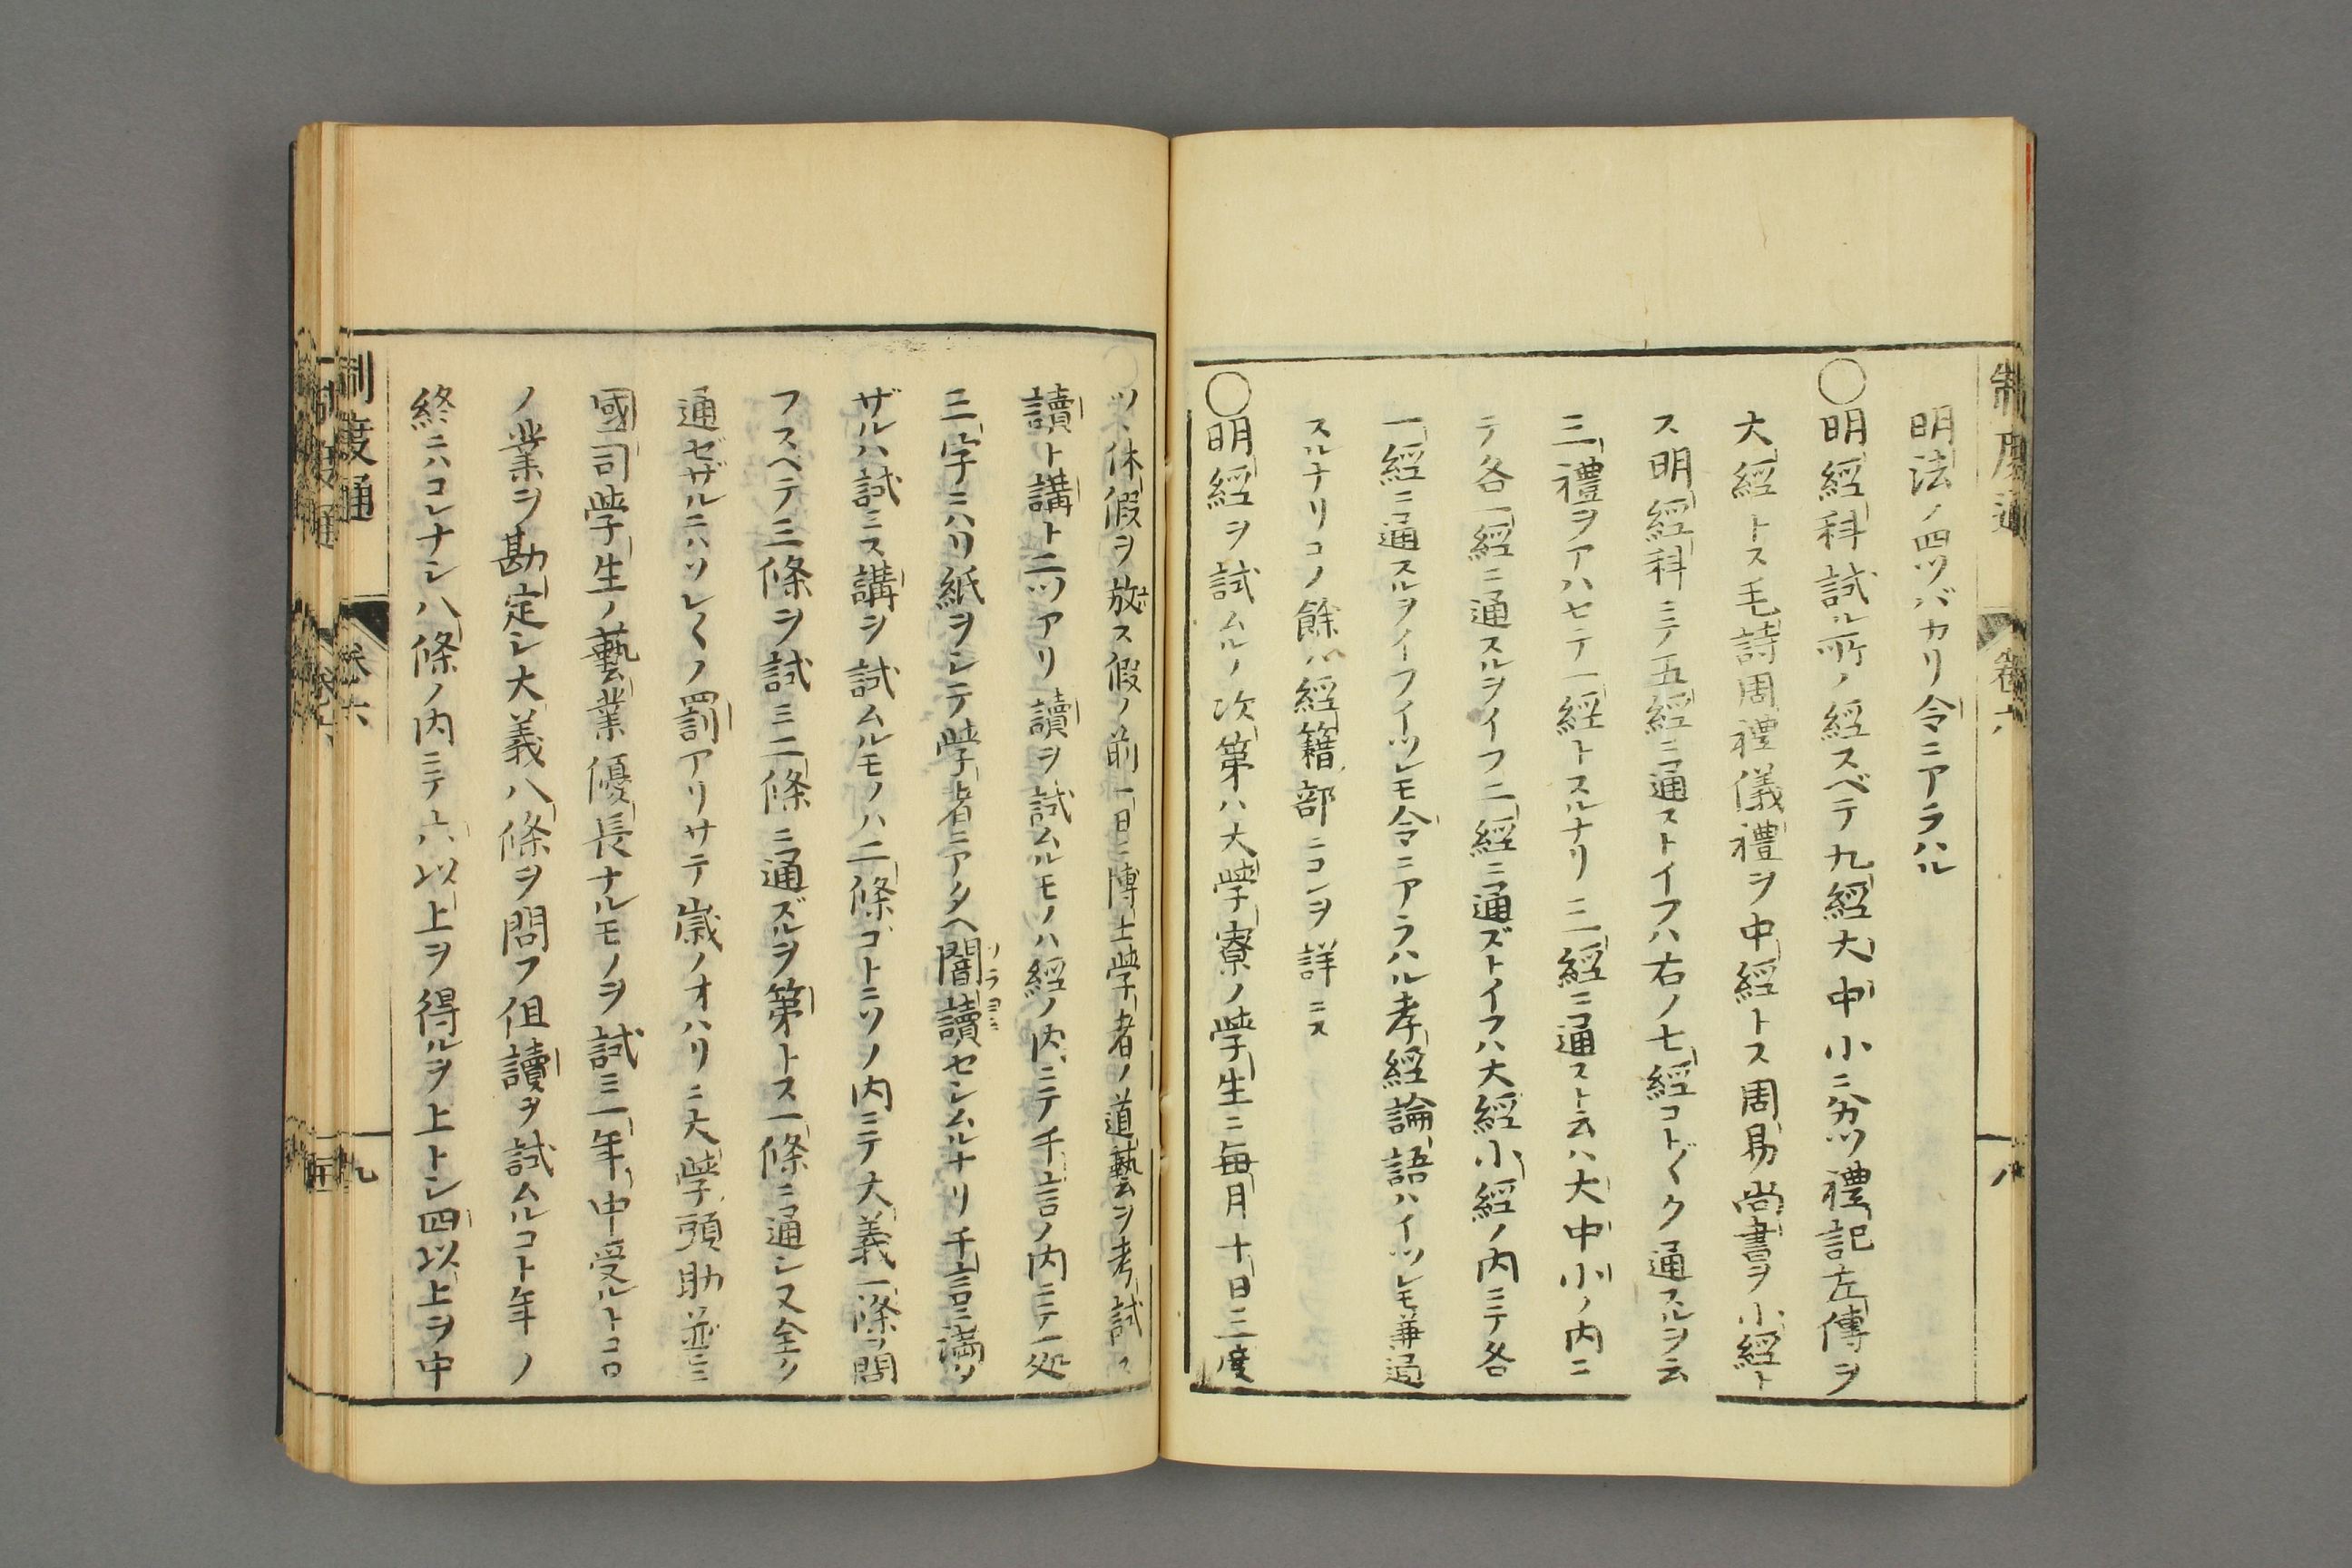 制度通 卷六 八
明法ノ四ツバカリ令ニアラハル
〇明經科試ル所ノ經スベテ九經大中小ニ分ツ禮記左傳ヲ
大經トス毛詩周禮儀禮ヲ中經トス周易尚書ヲ小經ト
ス明經科ニテ五經ニ通ストイフハ右ノ七經コト〲ク通スルヲ云
三禮ヲアハセテ一經トスルナリ三經ニ通スト云ハ大中小ノ内ニ
テ各一經ニ通スルヲイフ二經ニ通ズトイフハ大經小經ノ内ニテ各
一經ニ通スルヲイフイツレモ令ニアラハル孝經論語ハイツレモ兼通
スルナリコノ餘ハ經籍部ニコレヲ詳ニス
〇明經ヲ試ムルノ次第ハ大學寮ノ學生ニ毎月十日ニ三度
ツヽ休假ヲ放ス假ノ前一日ニ博士學者ノ道藝ヲ考試ス
讀ト講ト二ツアリ讀ヲ試ムルモノハ經ノ内ニテ千言ノ内ニテ一処
三字ニハリ紙ヲシテ學者ニアタヘ闇讀セシムルナリ千言ニ満ツ
ソラヨミ
ザルハ試ミス講ヲ試ムルモノハ二條ゴトニソノ内ニテ大義一條ヲ問
フスベテ三條ヲ試ミ二條ニ通ズルヲ第トス一條ニ通シ又全ク
通ゼザルニハソレ〱ノ罰アリサテ歳ノオハリニ大學頭助並ニ
國司學生ノ藝業優長ナルモノヲ試ミ一年中受ルトコロ
ノ業ヲ勘定シ大義八條ヲ問フ但讀ヲ試ムルコト年ノ
終ニハコレナシ八條ノ内ニテ六以上ヲ得ルヲ上トシ四以上ヲ中
制度通 卷六 九